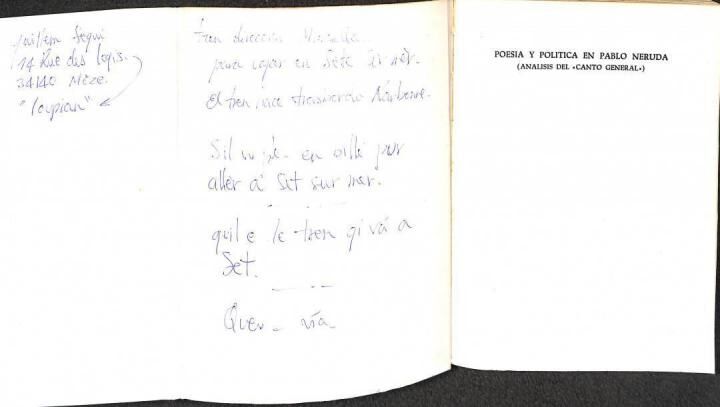 Guillem Segui
14 Rue des Logis.
34140 Mèze.
"loupian"
tren dirección
para bajar en Sète
El tren hace transbordo Narbonne.
Sil vu ple en
aller a Set sur mer.
quil e le tren qi vá a
Set.
Quer - vía -
POESIA Y POLITICA EN PABLO NERUDA
(ANALISIS DEL «CANTO GENERAL»)